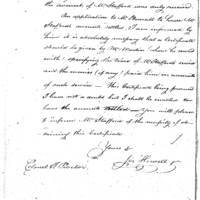 the amount of Mr Stafford was duly received.
An application to Mr Howell to have Mr
Stafford's accounts settled I am informed by
him it is absolutely necessary that a Certificate
should be given by Mr
specifying the time of Mr Stafford's service
and the monies (if any) paid him on account
of such service — this Certificate being procured
I have not a doubt but I shall be enabled to
have the accounts settled — you will please
to inform Mr Stafford of the necessity of ob
taining this Certificate
Yours &
Jos Howell Jr
Colonel